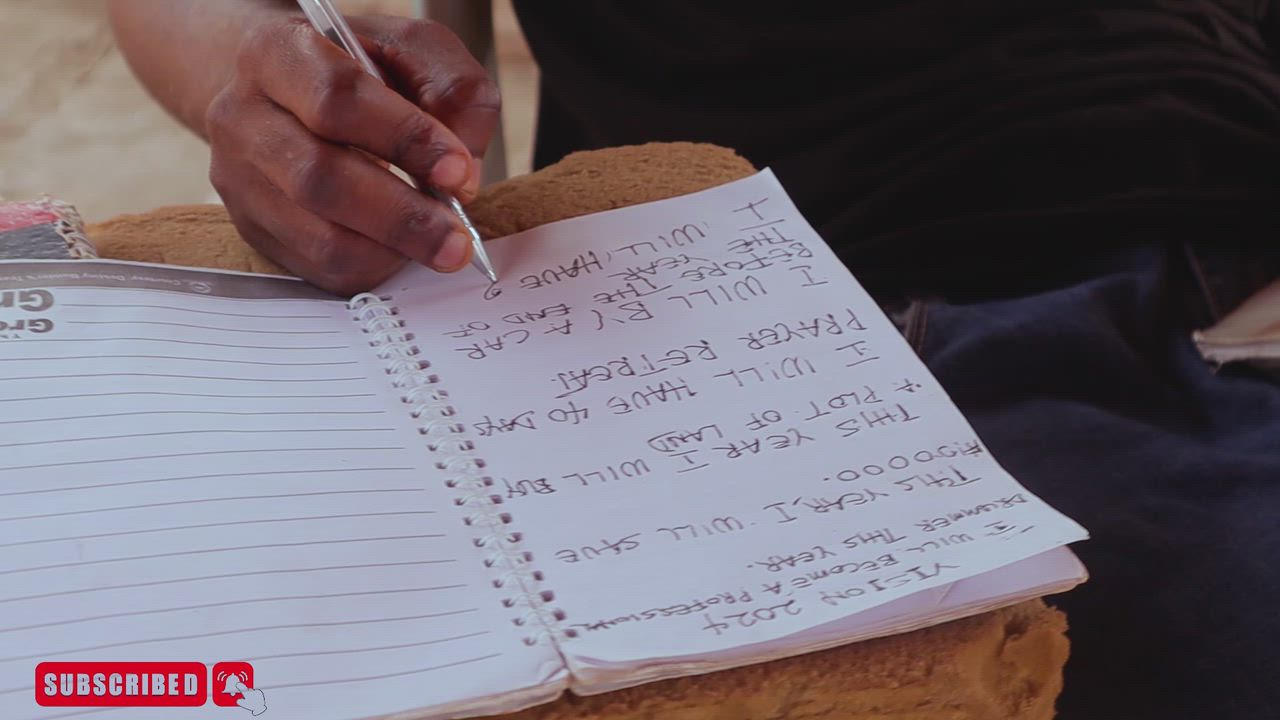 VISION 2024
I WILL BECOME A PROFESSIONAL
DRUMMER THIS YEAR.
THIS YEAR, I WILL SAVE
THIS YEAR I WILL BUY
A PLOT OF LAND
I WILL HAVE 40 DAYS
PRAYER RETREAT.
I WILL BY A CAR
BEFORE THE END OF
THE YEAR
I WILL HAVE
SUBSCRIBED